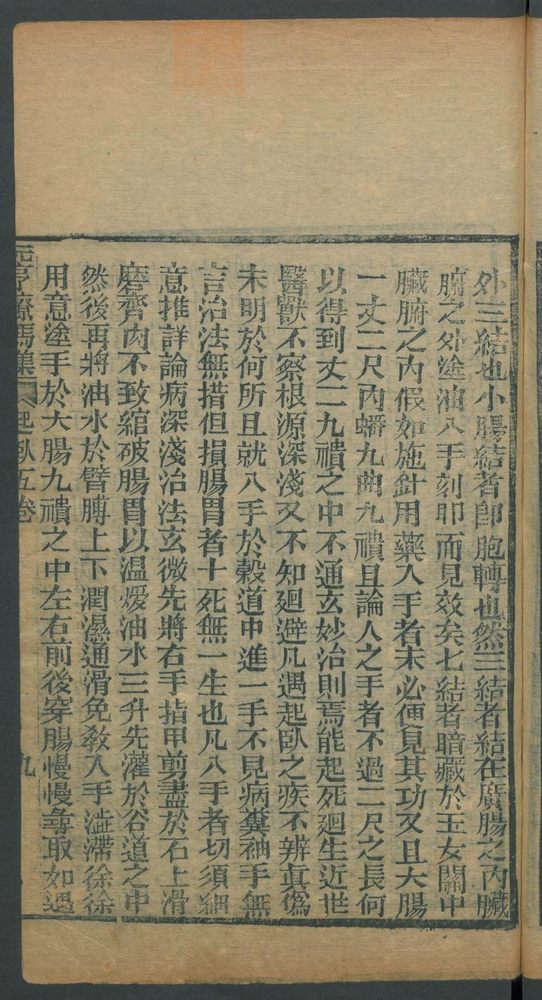 外三結也小腸結者即胞轉也然三結者結在廣腸之內臟
腑之外塗油入手刻即而見效矣七結者暗藏於玉女關中
臟腑之內假如施針用藥入手者未必便見其功又且大腸
一丈二尺內蟠九曲九襀且論人之手者不過二尺之長何
以得到丈二九襀之中不通玄妙治則焉能起死廻生近世
醫獸不察根源深淺又不知廻避凡遇起臥之疾不辨真偽
未明於何所且就入手於穀道中進一手不見病糞袖手無
言治法無措但損腸胃者十死無一生也凡入手者切須細
意推詳論病深淺治法玄微先將右手指甲剪盡於石上滑
磨齊肉不致綰破腸胃以温煖油水三升先灌於谷道之中
然後再將油水於臂膊上下潤濕通滑免教入手澁滯徐徐
用意塗手於大腸九襀之中左右前後穿腸慢慢尋取如遇
元亨療馬集 起臥五卷 九